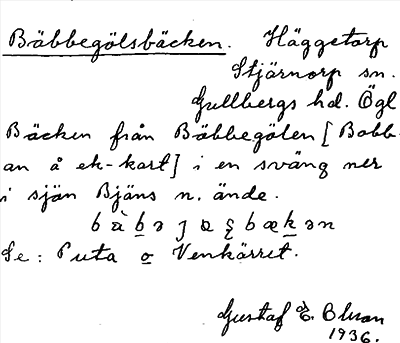 Bäbbegölsbäcken. Häggetorp
Stjärnorp sn.
Gullbergs hd. Ögl
Bäcken från Bäbbegölen [Bobb-
an å ek-kart] i en sväng ner
i sjön Bjäns n. ände.
Se: Puta o Venkärret.
Gustaf E.
1936.